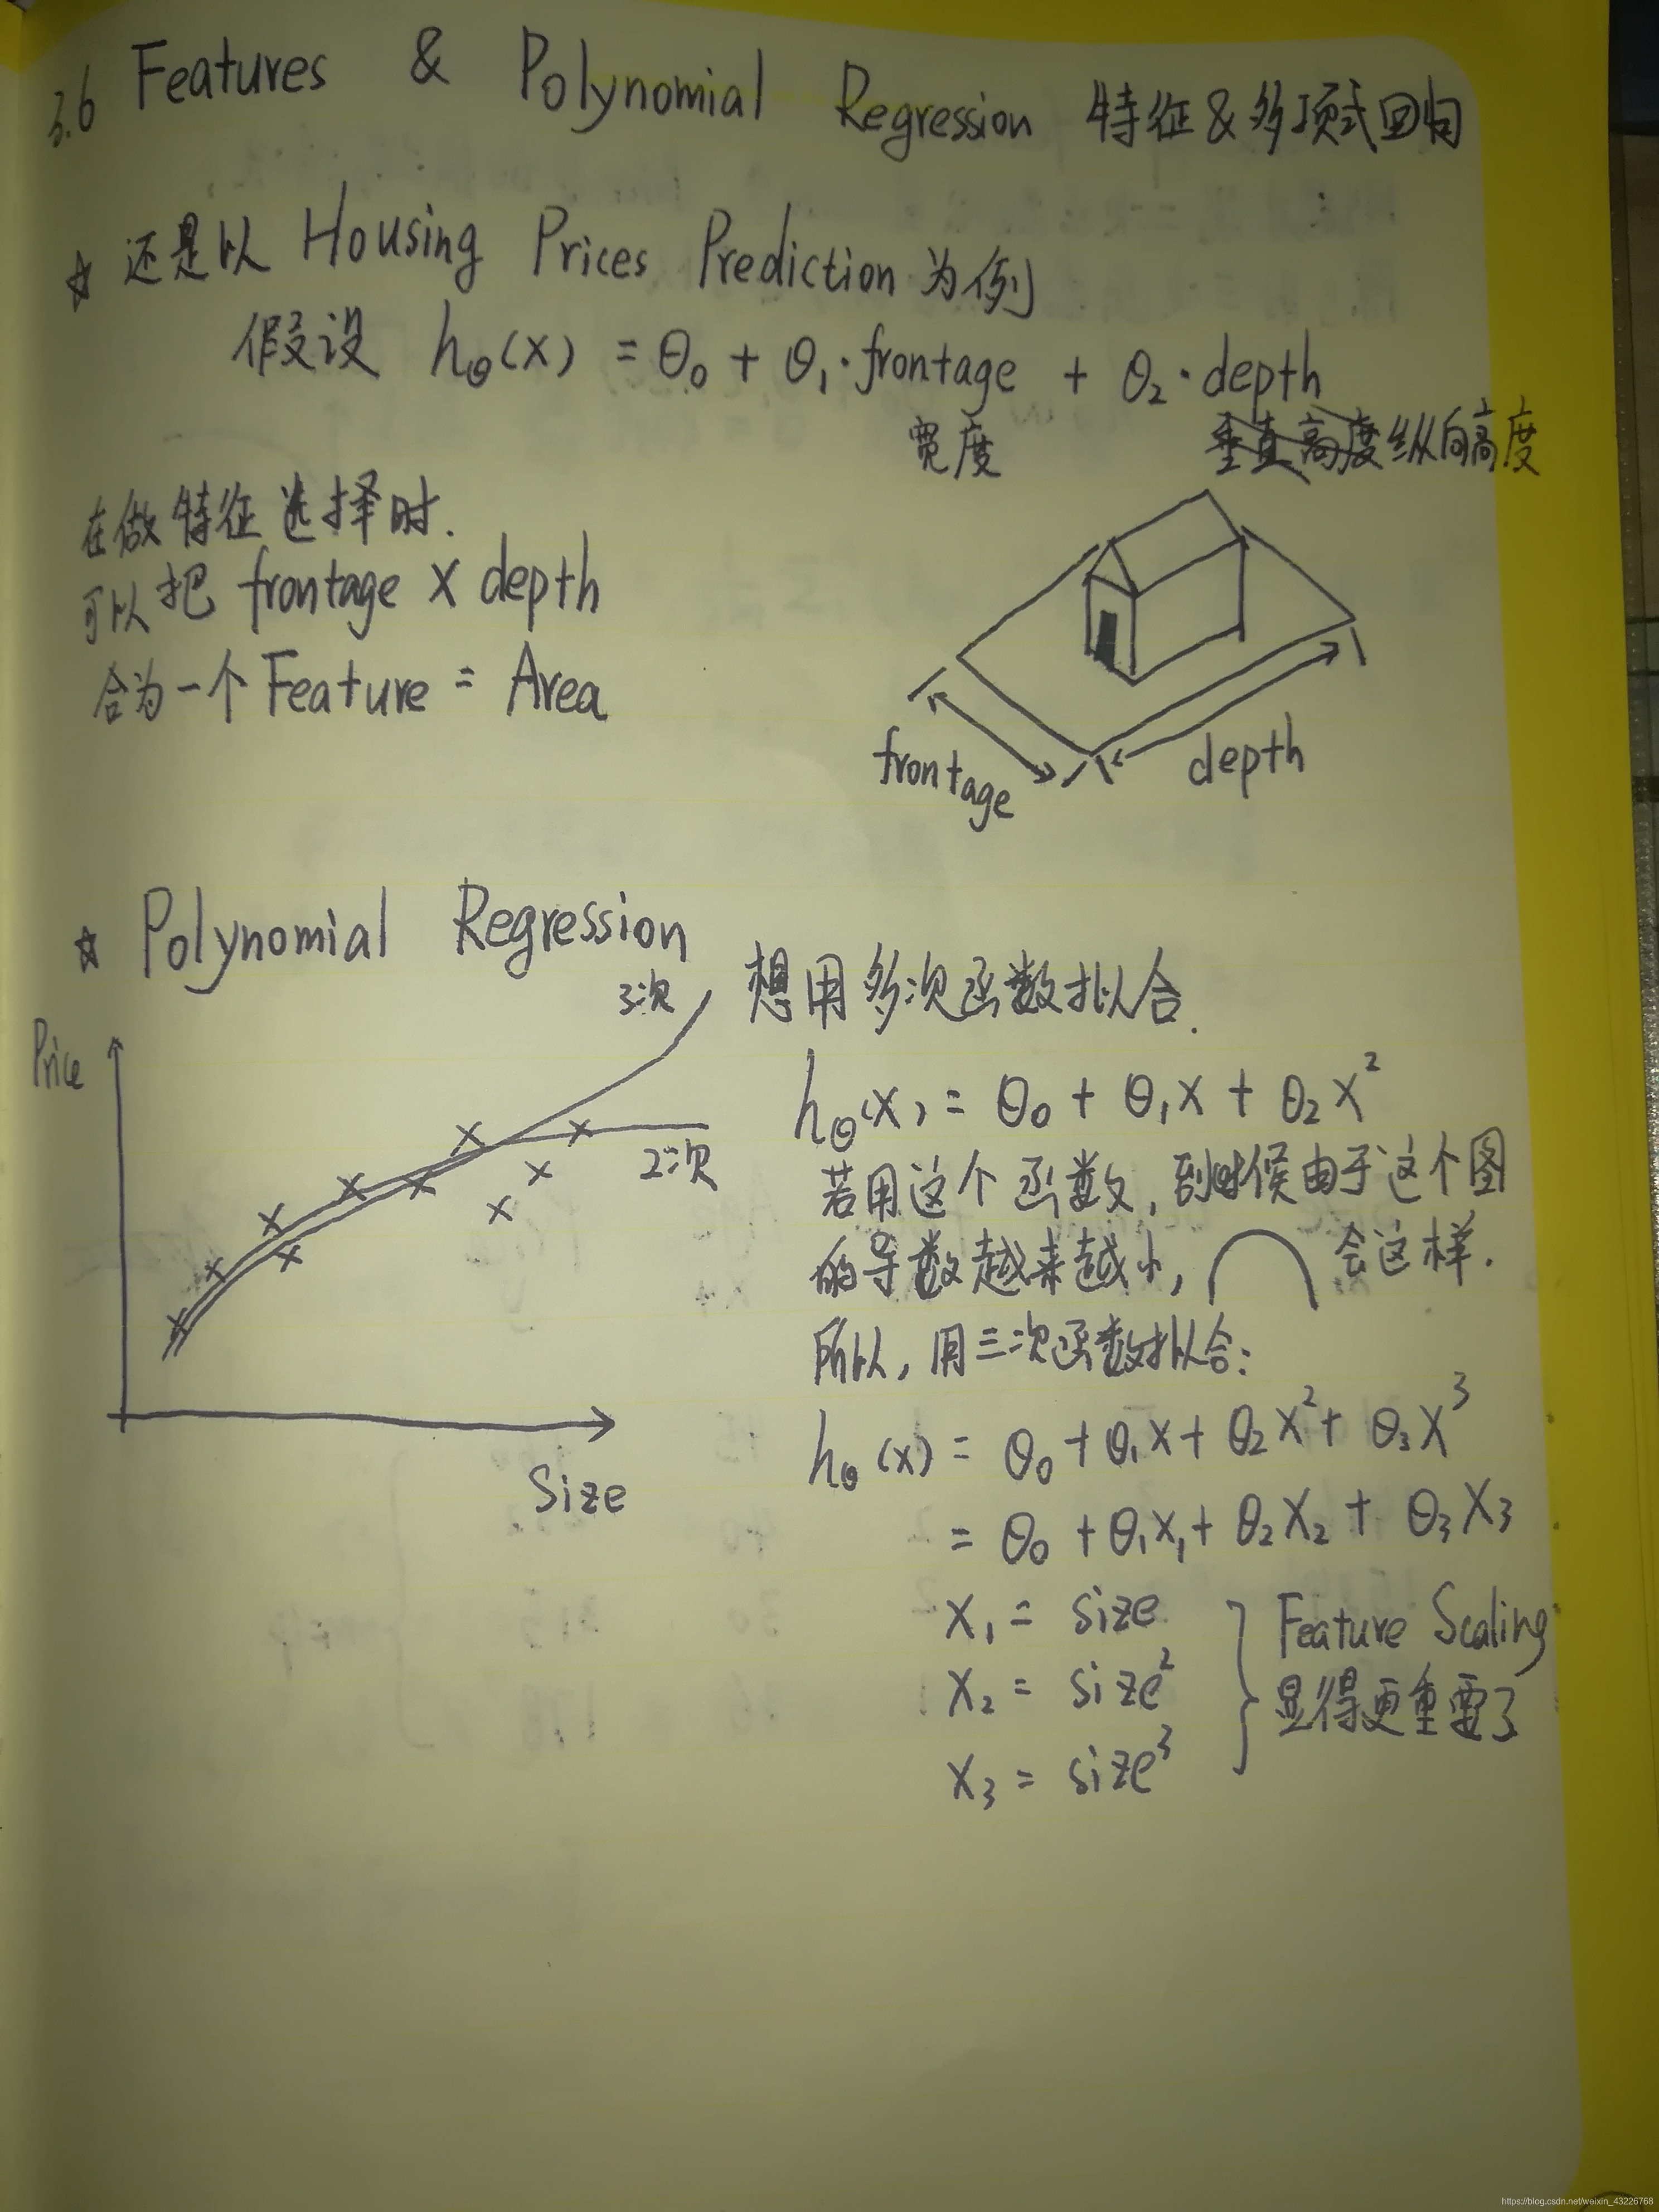 3.6 Features & Polynomial Regression 特征&多项式回归
☆ 还是以 Housing Prices Prediction 为例
假设 hθ(x) = θ0 + θ1·frontage + θ2·depth
宽度 垂直高度 纵向高度
在做特征选择时.
可以把 frontage × depth
合为一个 Feature = Area
frontage
depth
☆ Polynomial Regression
3次
想用多次函数拟合.
Price
2次
Size
hθ(x) = θ0 + θ1x + θ2x²
若用这个函数, 到时候由于这个图
的导数越来越小, 会这样.
所以, 用三次函数拟合:
hθ(x) = θ0 + θ1x + θ2x² + θ3x³
= θ0 + θ1x1 + θ2x2 + θ3x3
x1 = size
x2 = size²
x3 = size³
Feature Scaling
显得更重要了
https://blog.csdn.net/weixin_43226768